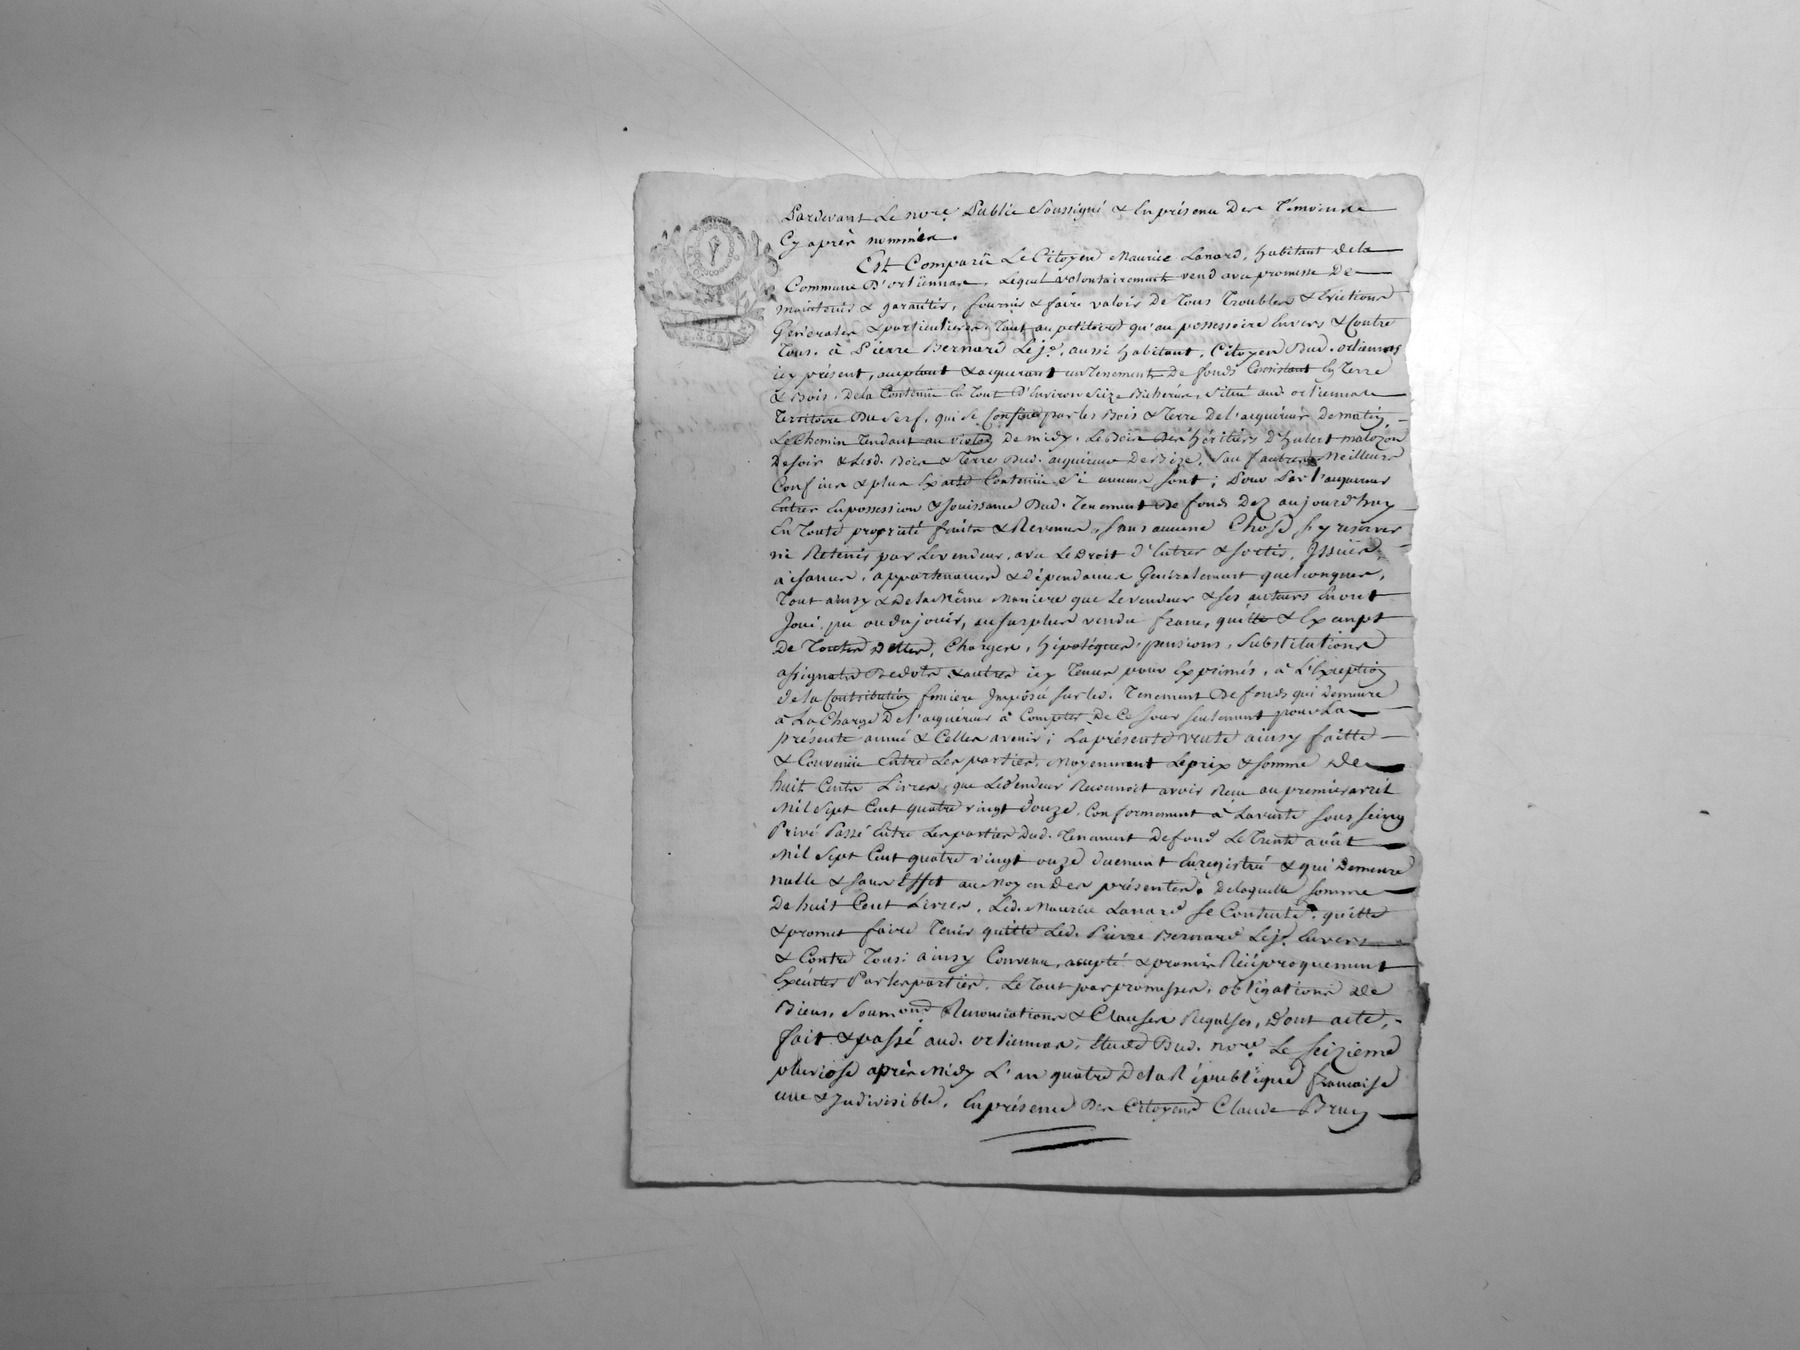 Pardevant Le no.re Public Soussigné & En présence Des Témoins
Cy après nommés.
Est Comparü Le Citoyen Maurice Lanard, habitant de la
Commune D'ortiennas, Lequel volontairement vend avec promesse De
maintenir & garantir, fournir & faire valoir De Tous Troubles & Evictions
Generales & particulieres. Tant au petitoire qu'au possessoire Envers & Contre
Tous. à Pierre Bernard Le j.e, aussi habitant, Citoyen Dud. ortiennas
icy présent, acceptant & acquerant un Tenement De fonds Consistant En Terre
& Bois, De la Contenüe En Tout D'Environ Seize Bicherées, Situé aud. ortiennas
Territoire Du Serf, qui Se Confine par les Bois & Terre De l'acquéreur De matin,
Le Chemin Tendant au De midy, Le Bois Des héritiers D'hubert
De soir & Lesd. Bois & Terre Dud. acquéreur De Bize, Sauf autres Meilleurs
Confins & plus Exacte Contenüe Si aucuns Sont; Pour Par l'acquereur
Entrer En possession & Jouissance Dud. Tenement De fonds Dez aujourd'huy
En Toute propriété fruits & Revenus, Sans aucune Chose s'y réserver
ni Retenir par Le vendeur, avec Le Droit d'Entrer & Sortir, Issües
aisances, appartenances & dépendances Généralement quelconques,
Tout ainsy & De la Même Maniere que Le vendeur & Ses auteurs En ont
Joui, pu ou du jouir, au surplus vendu franc, quitte & Exempt
De Toutes Dettes, Charges, hipotéques, pensions, Substitutions
assignats De dots & autres icy Tenus pour Exprimés, à L'Exception
de la Contribution fonciere Imposée Sur led. Tenement De fonds qui Demeure
à La Charge De l'acquéreur à Compter De Ce Jour Seulement pour La
présente année & Celles avenir; La présente vente ainsy faitte
& Convenüe Entre Les parties, Moyennant Le prix & Somme De
huit Cents Livres, que Le Vendeur Reconnoit avoir Reçu au premier avril
Mil Sept Cent quatre vingt Douze, Conformement à La vente Sous Seing
Privé Passé Entre Les parties Dud. Tenement De fond Le Trente août
Mil Sept Cent quatre vingt onze duement Enregistré & qui Demeure
nulle & Sans Effet au Moyen Des présentes. De laquelle Somme
De huit Cent Livres, Led. Maurice Lanard Se Contente, quitte
& promet faire Tenir quitte Led. Pierre Bernard Le j.e Envers
& Contre Tous: ainsy Convenu, accepté & promis Réciproquement
Exécuter Par Les parties, Le Tout par promesses, obligations De
Biens, Soumons Renonciations & Clauses Requises, Dont acte,
fait & passé aud. ortiennas, Etude Dud. no.re Le Seizieme
pluviose après Midy L'an quatre De la République françoise
une & Indivisible, En présence Des Citoyens Claude Brun